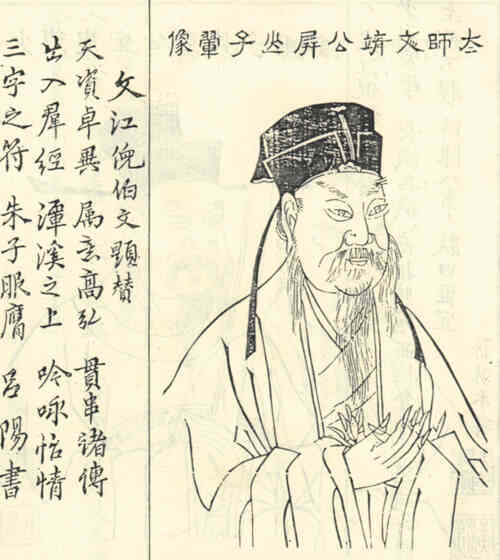 太師文靖公屏山子翬像
文江倪伯文顯贊
天資卓異 属意高弘 貫串諸傳
出入羣經 潭溪之上 吟咏怡情
三字之符 朱子服膺 呂陽書